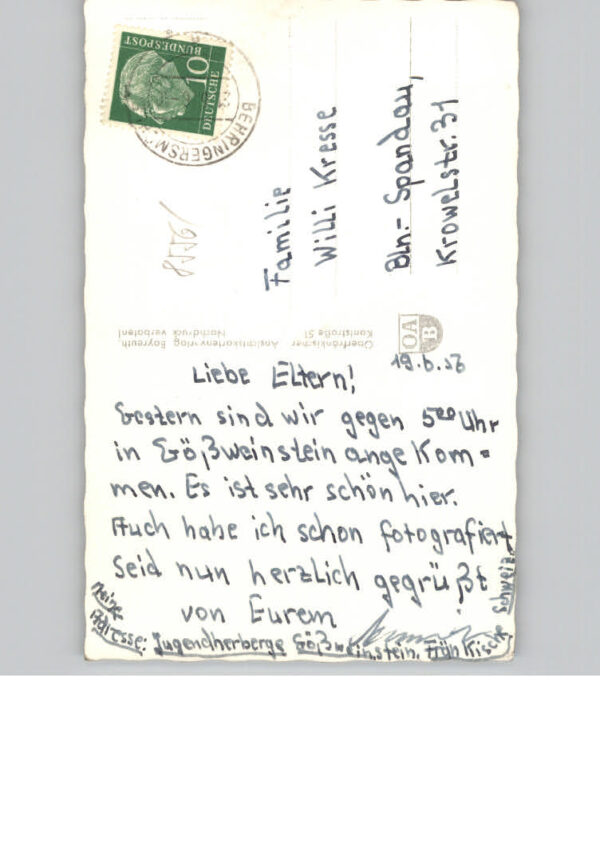 10
DEUTSCHE
BUNDESPOST
BEHRINGERSM
Familie
Willi Kresse
Bln.- Spandau,
Krowelstr. 31
Oberfränkischer Ansichtskartenverlag Bayreuth,
Kantstraße 51 Nachdruck verboten!
OA
B
19.6.56
Liebe Eltern!
Gestern sind wir gegen 5⁰⁰ Uhr
in Gößweinstein angekom=
men. Es ist sehr schön hier.
Auch habe ich schon fotografiert
Seid nun herzlich gegrüßt
von Eurem
Meine
Adresse: Jugendherberge Gößweinstein, Fränkische Schweiz.